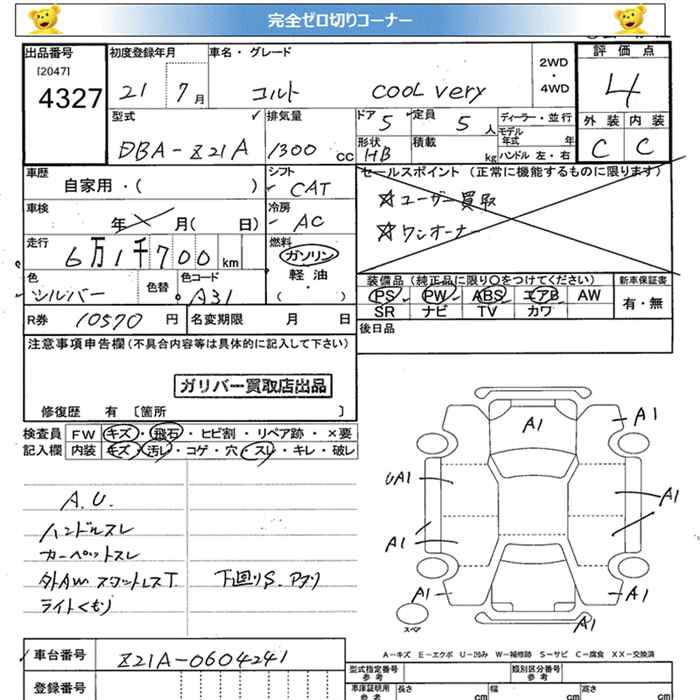 完全ゼロ切りコーナー
出品番号 初度登録年月 車名・グレード 2WD・4WD 評価点
[2047]
4327 21 7月 コルト COOL very 4
型式 排気量 ドア 5 定員 5人 ディーラー・並行 外装 内装
モデル年式 年
DBA-Z21A 1300cc 形状 HB 積載 kg ハンドル 左・右 C C
車歴 シフト セールスポイント (正常に機能するものに限ります)
自家用・( ) CAT ☆ユーザー買取
車検 冷房 ☆ワンオーナー
年 月( 日) AC
走行 燃料
6万1千700km ガソリン
軽油
( ・ )
色 色替 色コード 装備品 (純正品に限り○をつけてください) 新車保証書
シルバー A31 PS PW ABS エアB AW 有・無
SR ナビ TV カワ
R券 10570円 名変期限 月 日 後日品
注意事項申告欄(不具合内容等は具体的に記入して下さい)
ガリバー買取店出品
修復歴 有 〔箇所 〕
検査員 FW キズ・飛石・ヒビ割・リペア跡・×要
記入欄 内装 キズ・汚レ・コゲ・穴・スレ・キレ・破レ
A.U.
ハンドルスレ
カーペットスレ
外AW スタットレスT. 下廻りS.
ライトくもり
A1
A1
UA1
A1
A1
A1
A1
A1
スペア
A-キズ E-エクボ U-凹み W-補修跡 S-サビ C-腐食 XX-交換済
車台番号 Z21A-0604241 型式指定番号 参考 類別区分番号 参考
登録番号 車庫証明用 参考 長さ cm 幅 cm 高さ cm